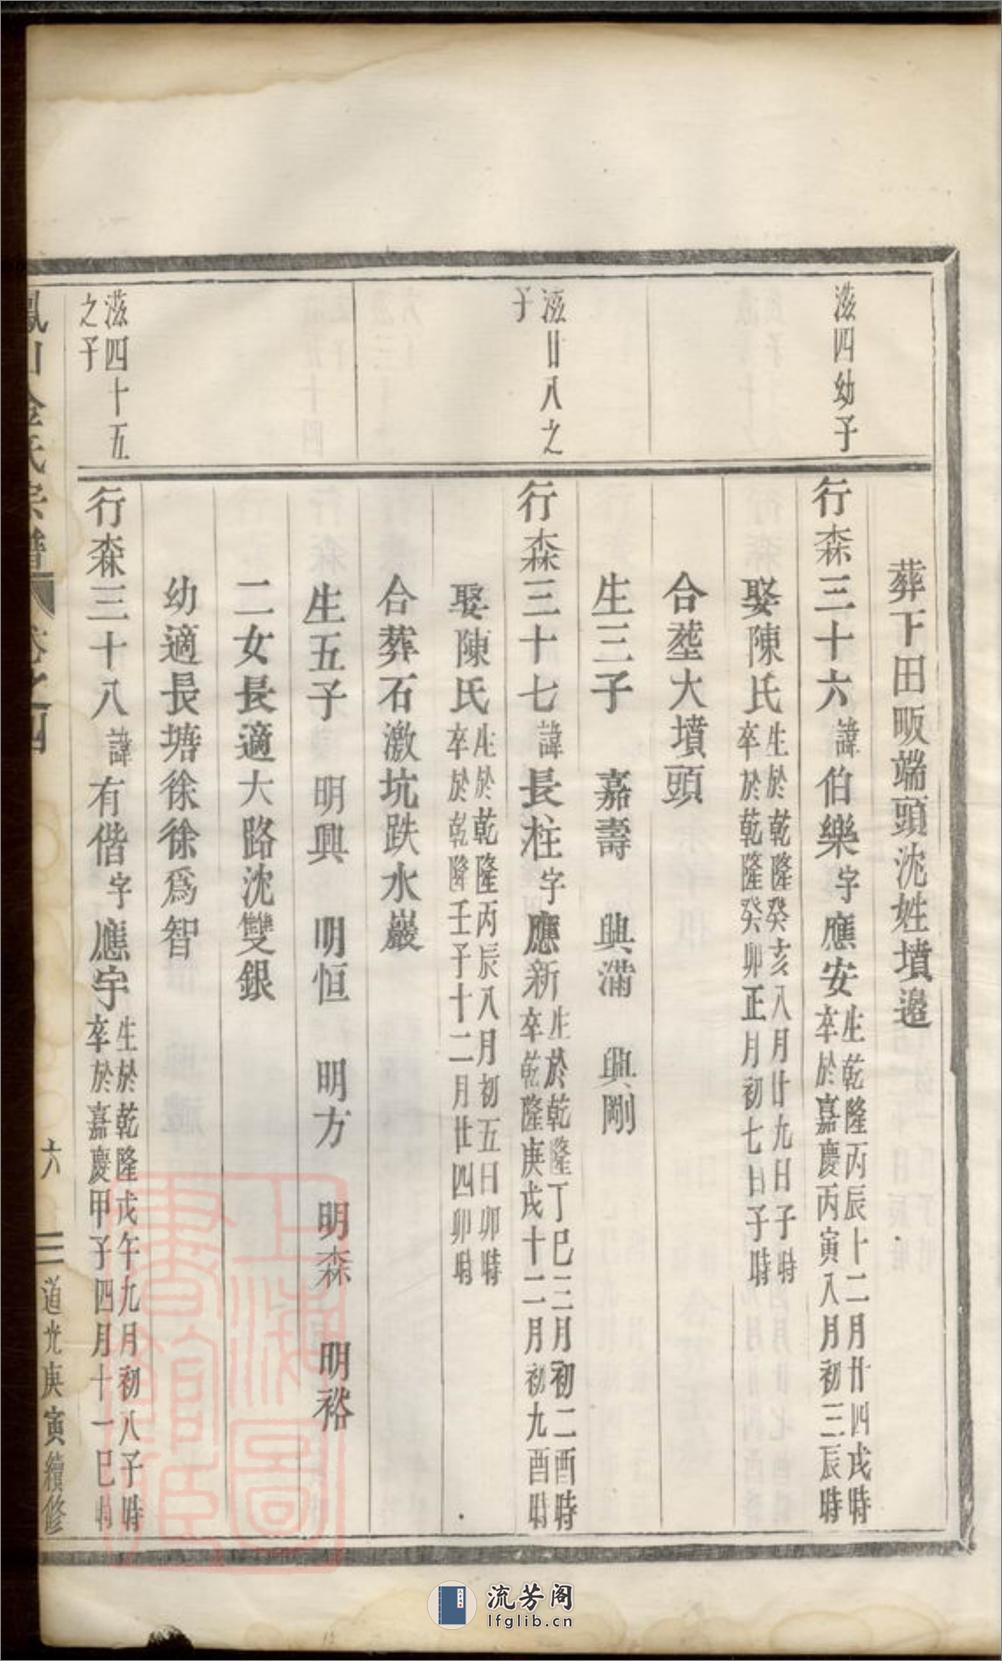 滋四幼子
滋廿八之
子
滋四十五
之子
葬下田畈端頭沈姓墳邉
行森三十六諱伯樂字應安
生乾隆丙辰十二月廿四戌時
卒於嘉慶丙寅八月初三辰時
娶陳氏
生於乾隆癸亥八月廿九日子時
卒於乾隆癸卯正月初七日子時
合塟大墳頭
生三子 嘉壽 興滿 興剛
行森三十七諱長柱字應新
生於乾隆丁巳三月初二酉時
卒乾隆庚戌十二月初九酉時
娶陳氏
生於乾隆丙辰八月初五日卯時
卒於乾隆壬子十二月廿四卯時
合葬石激坑跌水巖
生五子 明興 明恒 明方 明森 明裕
二女長適大路沈雙銀
幼適長塘徐徐爲智
行森三十八諱有偕字應宇
生於乾隆戊午九月初八子時
卒於嘉慶甲子四月十一巳時
鳳山金氏宗譜 卷之四 六 道光庚寅續修
上海圖書館藏
流芳阁
lfglib.cn